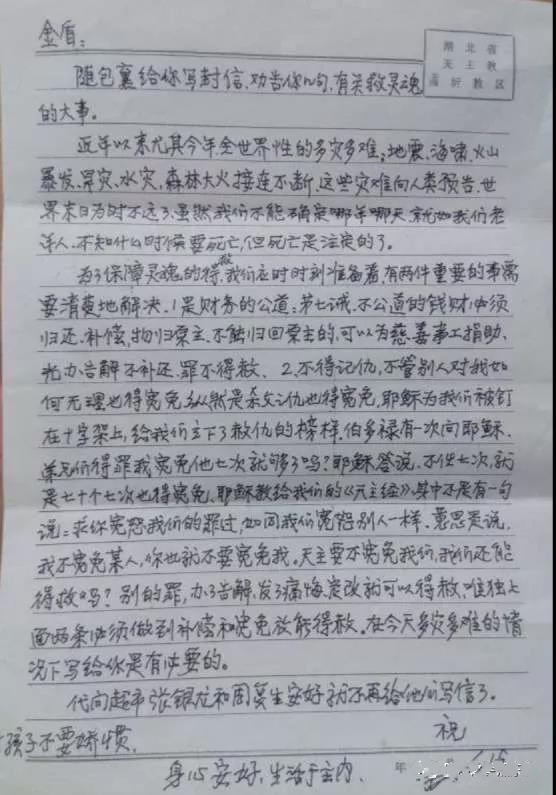 湖北省
天主教
蒲圻教区
金盾：
随包裹给你写封信，劝告你几句，有关救灵魂
的大事。
近年以来尤其今年全世界性的多灾多难：地震、海啸、火山
暴发、旱灾、水灾，森林大火接连不断，这些灾难向人类预告，世
界末日为时不远了，虽然我们不能确定哪年哪天，就如我们老
年人，不知什么时候要死亡，但死亡是注定的了。
为了保障灵魂的得救，我们应时时刻准备着，有两件重要的事需
要清楚地解决，1是财务的公道：第七诫，不公道的钱财必须
归还、补偿，物归原主，不能归回原主的，可以为慈善事工捐助，
光办告解不补还，罪不得赦，2、不得记仇，不管别人对我如
何无理也得宽免，纵然是杀父之仇也得宽免，耶稣为我们被钉
在十字架上，给我们立下了赦仇的榜样，伯多禄有一次问耶稣，
弟兄们得罪我宽免他七次就够了吗？耶稣答说，不但七次，就
是七十个七次也得宽免，耶稣教给我们的《天主经》，其中不是有一句
说：求你宽恕我们的罪过，如同我们宽恕别人一样，意思是说，
我不宽免某人，你也就不要宽免我。天主要不宽免我们，我们还能
得救吗？别的罪，办了告解，发了痛悔定改就可以得赦，唯独上
面两条必须做到补偿和宽免放能得赦。在今天多灾多难的情
况下写给你是有必要的。
代问超市张银龙和周复生安好，就不再给他们写信了。
孩子不要娇惯，
祝
身心安好，生活于主内。
年